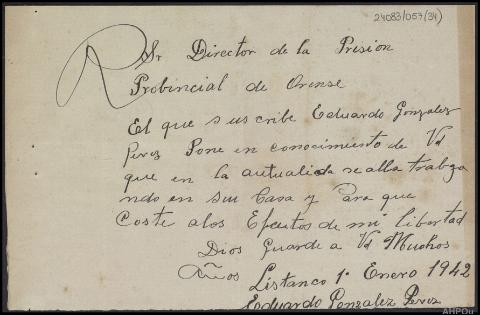 24083/057(34)
Sr Director de la Prision
Probincial de Orense
El que suscribe Eduardo Gonzalez
Perez Pone en conocimiento de Vd
que en la actualida se alla trabga
ndo en suu Casa y Para que
Coste alos Efeutos de mi libertad
Dios Guarde a Vd Muchos
Años Listanco 1· Enero 1942
Eduardo Gonzalez Perez
AHPOu